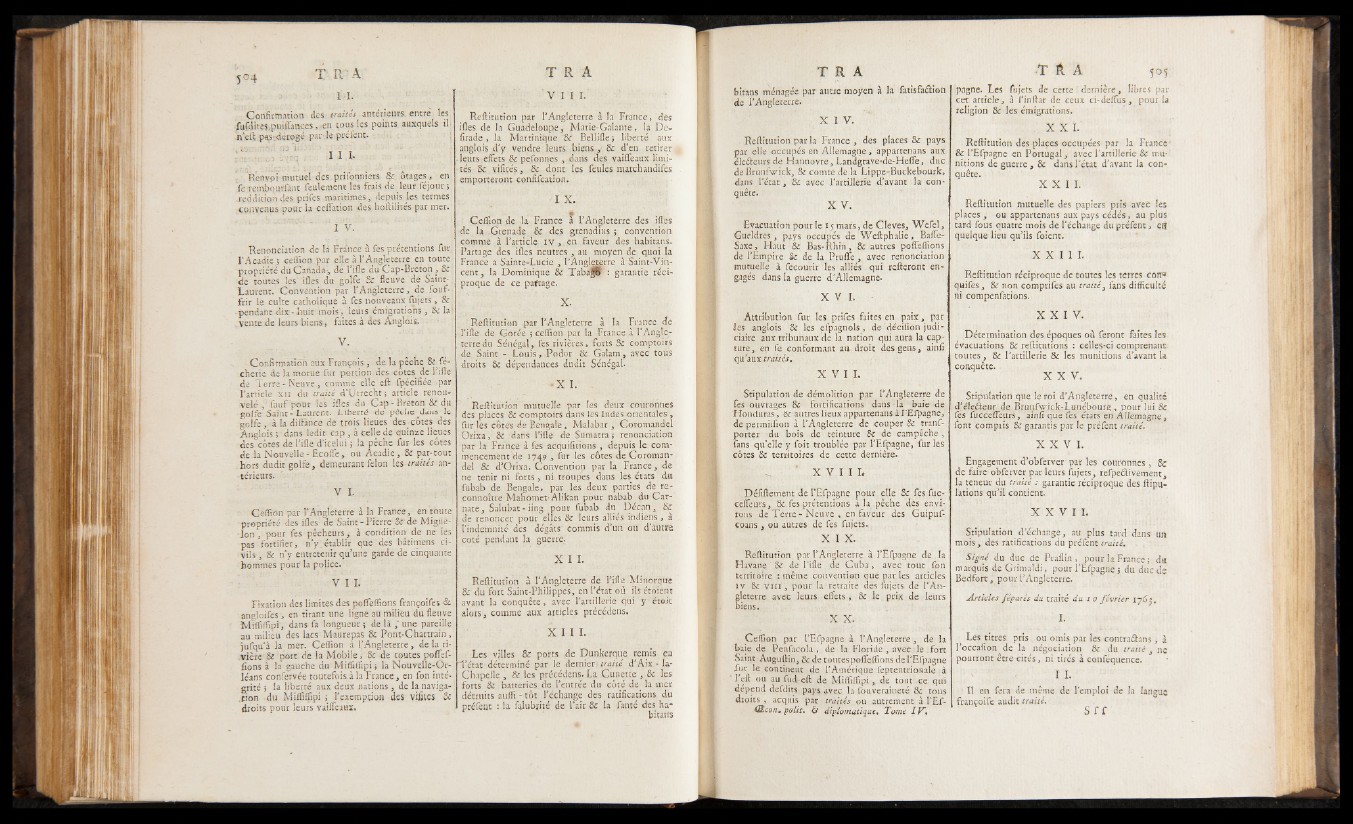 504 T R A
I I.
Confirmation des traités antérieurs, entre les
susdites puissances, en tous les points auxquels il
n'est pas dérogé par le présent.
I I I.
Renvoi mutuel des prisonniers & ôtages, en
se remboursant seulement les frais de leur séjour;
reddition des prises maritimes, depuis les termes
convenus pour la cessation des hostilités par mer.
I V.
Renonciation de la France à ses prétentions sur
l'Acadie; cession par elle à l'Angleterre en toute
propriété du Canada, de l'isle du Cap-Breton, &
de toutes les isles du golfe & fleuve de Saint-
Laurent. Convention par l'Angleterre, de souf-
frir le culte catholique à ses nouveaux sujets, &
pendant dix-huit mois, leurs émigrations, & la
vente de leurs biens, faites à des Anglois.
V.
Confirmation aux François, de la pêche & sé-
cherie de la morue sur portion des côtes de l'isle
de Terre-Neuve, comme elle est spécifiée par
l'article XII du traité d'Utrecht; article renou-
velé, sauf pour les isles du Cap-Breton & du
golfe Saint-Laurent. Liberté de pêche dans le
golfe, à la distance de trois lieues des côtes des
Anglois; dans ledit cap, à celle de quinze lieues
des côtes de l'isle d'icelui; la pêche sur les côtes
de la Nouvelle-Ecosse, ou Acadie, & par-tout
hors dudit golfe, demeurant selon les traités an-
térieurs.
V I.
Cession par l'Angleterre à la France, en toute
propriété des isles de Saint-Pierre & de Mique-
lon, pour ses pêcheurs, à condition de ne les
pas fortifier, n'y établir que des bâtimens ci-
vils, & n'y entretenir qu'une garde de cinquante
hommes pour la police.
V I I.
Fixation des limites des possessions françoises &
angloises, en tirant une ligne au milieu du fleuve
Mississipi, dans sa longueur; de là, une pareille
au milieu des lacs Maurepas & Pont-Chartrain,
jusqu'à la mer. Cession à l'Angleterre, de la ri-
vière & port de la Mobile, & de toutes posses-
sions à la gauche du Mississipi; la Nouvelle-Or-
léans conservée toutefois à la France, en son inté-
grité; la liberté aux deux nations, de la naviga-
tion du Mississipi; l'exemption des visites &
droits pour leurs vaisseaux.
T R A
V I I I.
Restitution par l'Angleterre à la France, des
isles de la Guadeloupe, Marie-Galante, la De-
sirade, la Martinique & Bellisle; liberté aux
anglois d'y vendre leurs biens, & d'en retirer
leurs effets & pesonnes, dans des vaisseaux limi-
tés & visités, & dont les seules marchandises
emporteront confiscation.
I X.
Cession de la France à l'Angleterre des isles
de la Grenade & des grenadins; convention
comme à l'article IV, en faveur des habitans.
Partage des isles neutres, au moyen de quoi la
France a Sainte-Lucie, l'Angleterre a Saint-Vin-
cent, la Dominique & Tabago: garantie réci-
proque de ce partage.
X.
Restitution par l'Angleterre à la France de
l'isle de Gorée; cession par la France à l'Angle-
terre du Sénégal, ses rivières, forts & comptoirs
de Saint-Louis, Podor & Galam, avec tous
droits & dépendances dudit Sénégal.
X I.
Restitution mutuelle par les deux couronnes
des places & comptoirs dans les Indes orientales,
sur les côtes de Bengale, Malabar, Coromandel
Orixa, & dans l'isle de Sumatra; renonciation
par la France à ses acquisitions, depuis le com-
mencement de 1749, sur les côtes de Coroman-
del & d'Orixa. Convention par la France, de
ne tenir ni forts, ni troupes dans les états du
subab de Bengale, par les deux parties de re-
connoître Mahomet-Alikan pour nabab du Car-
nate, Salubat-jing pour subab du Décan, &
de renoncer pour elles & leurs alliés indiens, à
l'indemnité des dégâts commis d'un ou d'autre
coté pendant la guerre.
X I I.
Restitution à l'Angleterre de l'isle Minorque
& du fort Saint-Philippes, en l'état où ils étoient
avant la conquête, avec l'artillerie qui y étoit
alors, comme aux articles précédens.
X I I I.
Les villes & ports de Dunkerque remis en
l'état déterminé par le dernier traité d'Aix-la-
Chapelle, & les précédens. La Cunette, & les
forts & batteries de l'entrée du côté de la mer
détruits aussi-tôt l'échange des ratifications du
présent: la salubrité de l'air & la santé des ha-
bitans
T R A
bitans ménagée par autre moyen à la satisfaction
de l'Angleterre.
X I V.
Restitution par la France, des places & pays
par elle occupés en Allemagne, appartenans aux
électeurs de Hannovre, Landgrave-de-Hesse, duc
de Brunswick, & comte de la Lippe-Buckebourk,
dans l'état, & avec l'artillerie d'avant la con-
quête.
X V.
Evacuation pour le 15 mars, de Cleves, Wesel,
Gueldres, pays occupés de Westphalie, Basse-
Saxe, Haut & Bas-Rhin, & autres possessions
de l'Empire & de la Prusse, avec renonciation
mutuelle à secourir les alliés qui resteront en-
gagés dans la guerre d'Allemagne.
X V I.
Attribution sur les prises faites en paix, par
les anglois & les espagnols, de décision judi-
ciaire aux tribunaux de la nation qui aura la cap-
ture, en se conformant au droit des gens, ainsi
qu'aux traités.
X V I I.
Stipulation de démolition par l'Angleterre de
ses ouvrages & fortifications dans la baie de
Honduras, & autres lieux appartenans à l'Espagne,
de permission à l'Angleterre de couper & trans-
porter du bois de teinture & de campêche,
sans qu'elle y soit troublée par l'Espagne, sur les
côtes & territoires de cette dernière.
X V I I I.
Désistement de l'Espagne pour elle & ses suc-
cesseurs, & ses prétentions à la pêche des envi-
rons de Terre-Neuve, en faveur des Guipus-
coans, ou autres de ses sujets.
X I X.
Restitution par l'Angleterre à l'Espagne de la
Havane & de l'isle de Cuba, avec tout son
territoire: même convention que par les articles
IV & VIII, pour la retraite des sujets de l'An-
gleterre avec leurs effets, & le prix de leurs
biens.
X X.
Cession par l'Espagne à l'Angleterre, de la
baie de Pensacola, de la Floride, avec le fort
Saint Augustin, & de toutes possessions de l'Espagne
sur le continent de l'Amérique septentrionale à
l'est ou au sud-est de Mississipi, de tout ce qui
dépend desdits pays avec la souveraineté & tous
droits, acquis par traités ou autrement à l'Es-
Œcon. polit. & diplomatique. Tome IV.
T R A 505
pagne. Les sujets de cette dernière, libres par
cet article, à l'instar de ceux ci-dessus, pour la
religion & les émigrations.
X X I.
Restitution des places occupées par la France
& l'Espagne en Portugal, avec l'artillerie & mu-
nitions de guerre, & dans l'état d'avant la con-
quête.
X X I I.
Restitution mutuelle des papiers pris avec les
places, ou appartenans aux pays cédés, au plus
tard sous quatre mois de l'échange du présent, en
quelque lieu qu'ils soient.
X X I I I.
Restitution réciproque de toutes les terres con-
quises, & non comprises au traité, sans difficulté
ni compensations.
X X I V.
Détermination des époques où seront faites les
évacuations & restitutions: celles-ci comprenant
toutes, & l'artillerie & les munitions d'avant la
conquête.
X X V.
Stipulation que le roi d'Angleterre, en qualité
d'électeur de Brunswick-Lunébourg, pour lui &
ses successeurs, ainsi que ses états en Allemagne,
sont compris & garantis par le présent traité.
X X V I.
Engagement d'observer par les couronnes, &
de faire observer par leurs sujets, respectivement,
la teneur du traité: garantie réciproque des stipu-
lations qu'il contient.
X X V I I.
Stipulation d'échange, au plus tard dans un
mois, des ratifications du présent traité.
Signé du duc de Praslin, pour la France; du
marquis de Grimaldi, pour l'Espagne; du duc de
Bedfort, pour l'Angleterre.
Articles séparés du traité du 10 février 1763.
I.
Les titres pris ou omis par les contractans, à
l'occasion de la négociation & du traité, ne
pourront être cités, ni tirés à conséquence.
I I.
Il en sera de même de l'emploi de la langue
françoise audit traité.
S s s